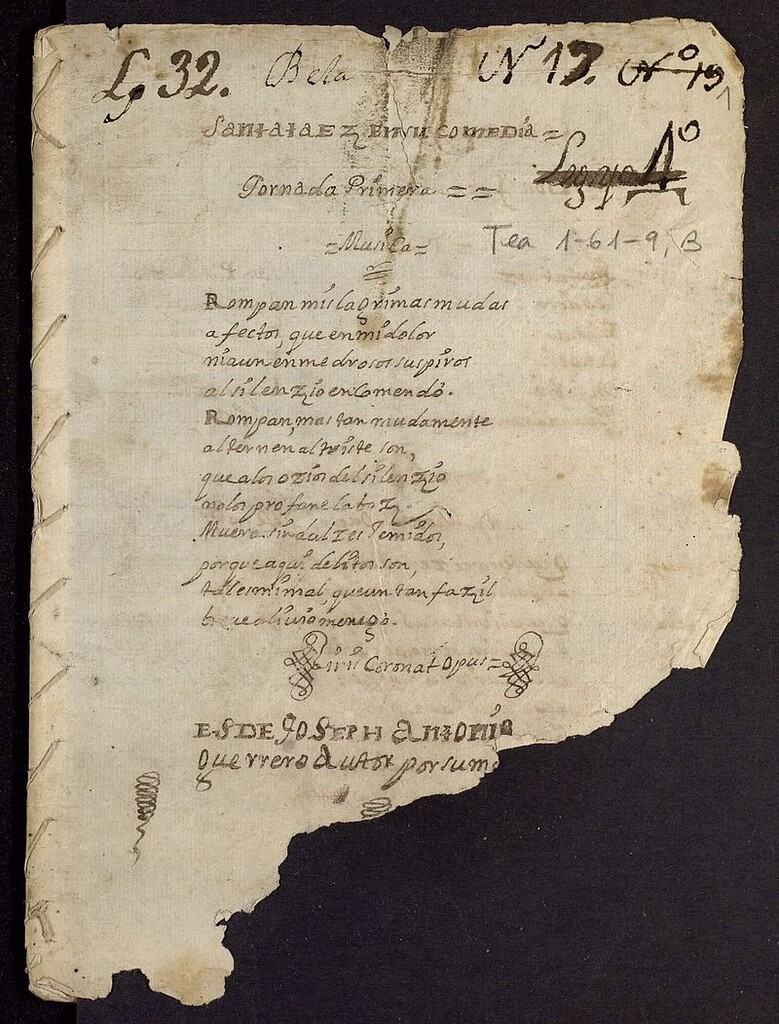 Lg 32. Beta Nº 17. Nº 19
en su comedia =
Jornada Primera = =
= Musica =
Tea 1-61-9, B
Rompan mis lagrimas mudas
afectos, que en mi dolor
ni aun en medrosos suspiros
al silenzio encomendó.
Rompan, mas tan mudamente
alternen al triste son,
que a los ozios del silenzio
no los profane la boz.
Muera sin dulzes jemidos,
porque aqui delitos son,
tal es mi mal, que un tan fazil
breve alivio
Finis Coronat Opus =
ES DE JOSEPH ANTONIO
Guerrero Autor por su m